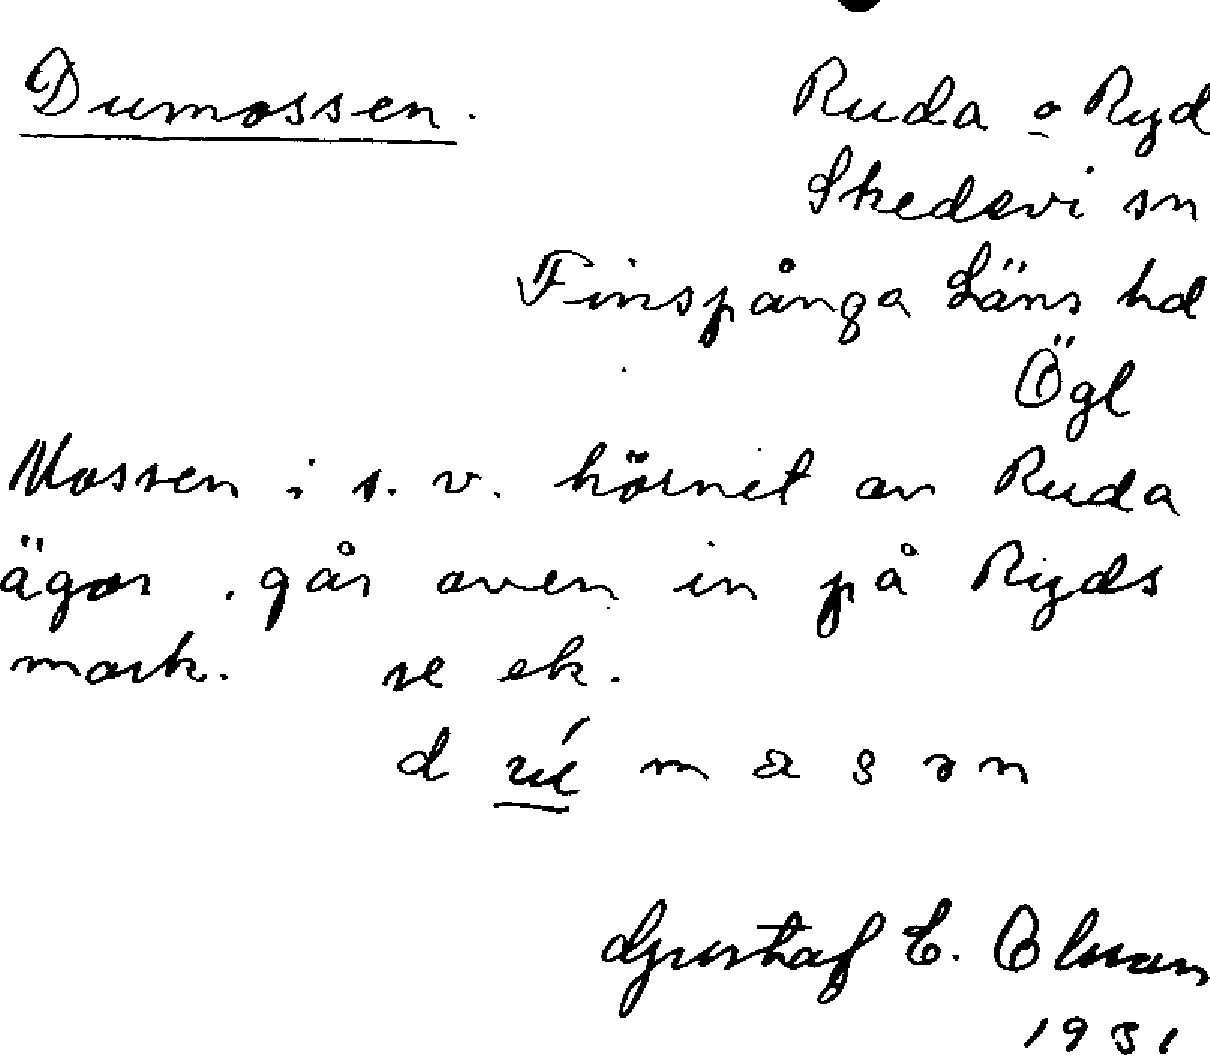 Dumossen. Ruda o Ryd
Skedevi sn
Finspånga Läns hd
Ögl
Mossen i s. v. hörnet av Ruda
ägor, går aven in på Ryds
mark. se ek.
d ú m a s ə n
Gustaf E. Olsson
1931